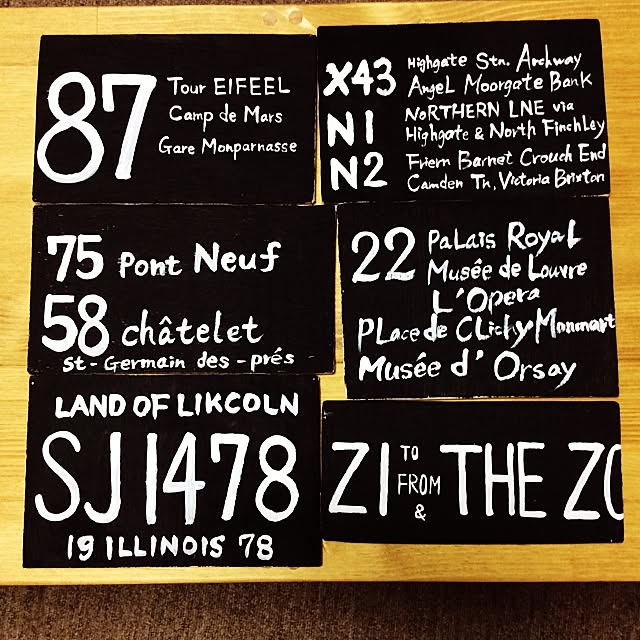 87 Tour EIFEEL
Camp de Mars
Gare Monparnasse
X43 Highgate Stn. Archway
Angel Moorgate Bank
N1 NoRTHERN LNE via
Highgate & North Finchley
N2 Friern Barnet Crouch End
Camden Tn, Victoria Brixton
75 Pont Neuf
58 châtelet
St-Germain des-prés
22 PaLais RoyaL
Musée de Louvre
L'Opera
PLace de CLichy Monmart
Musée d' Orsay
LAND OF LIKCOLN
SJ1478
19 ILLINOIS 78
Z1 TO FROM & THE ZO